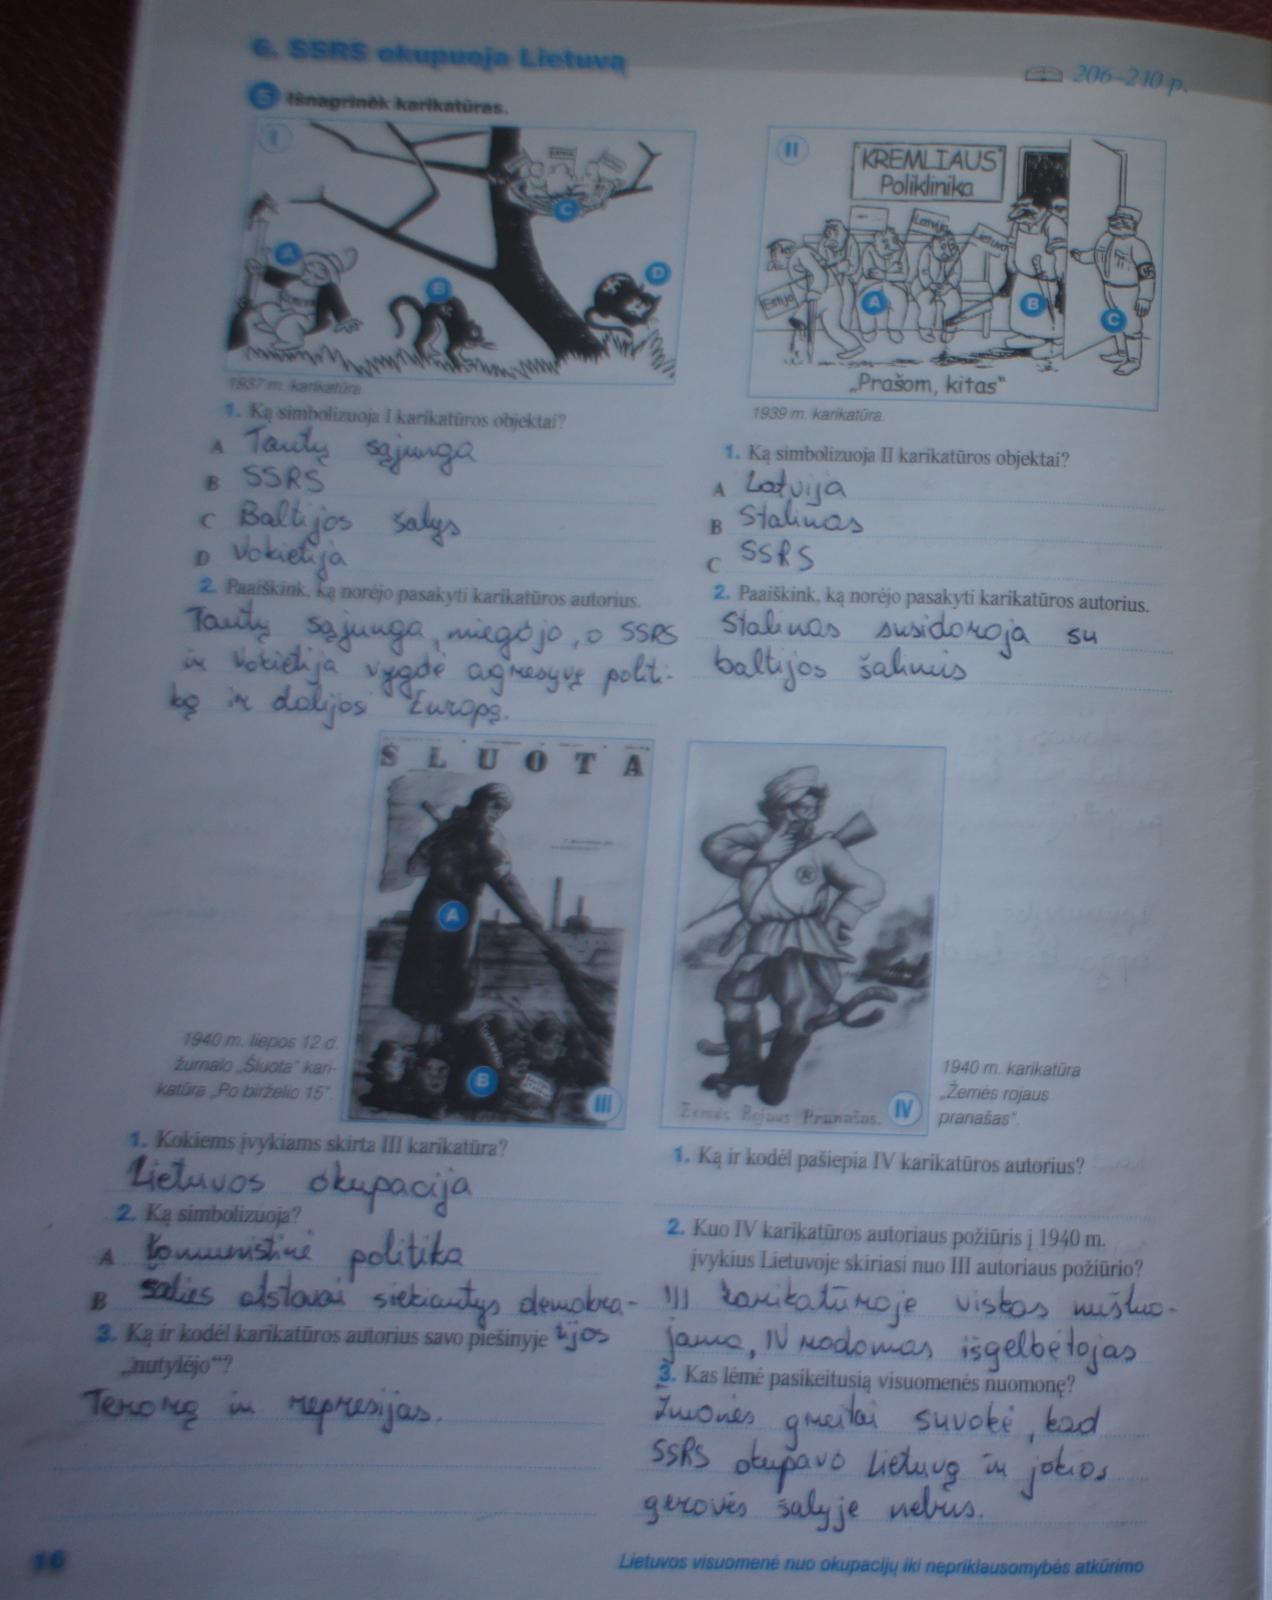 6. SSRS okupuoja Lietuvą
206–210 p.
5 Išnagrinėk karikatūras.
I
A
B
C
D
1937 m. karikatūra.
1. Ką simbolizuoja I karikatūros objektai?
A Tautų sąjunga
B SSRS
C Baltijos šalys
D Vokietija
2. Paaiškink, ką norėjo pasakyti karikatūros autorius.
Tautų sąjunga, miegojo, o SSRS
ir Vokietija vygdė agresyvę politi-
ką ir dalijosi Europą.
II
KREMLIAUS
Poliklinika
Estija
Latvija
Lietuva
A
B
C
„Prašom, kitas“
1939 m. karikatūra.
1. Ką simbolizuoja II karikatūros objektai?
A Latvija
B Stalinas
C SSRS
2. Paaiškink, ką norėjo pasakyti karikatūros autorius.
Stalinas susidoroja su
baltijos šalimis
ŠLUOTA
A
B
III
1940 m. liepos 12 d.
žurnalo „Šluota“ kari-
katūra „Po birželio 15“.
1. Kokiems įvykiams skirta III karikatūra?
Lietuvos okupacija
2. Ką simbolizuoja?
A komunistinė politika
B šalies atstovai siekiantys demokra-
tijos
3. Ką ir kodėl karikatūros autorius savo piešinyje
„nutylėjo“?
Terorą ir represijas.
Žemės Rojaus Pranašas.
IV
1940 m. karikatūra
„Žemės rojaus
pranašas“.
1. Ką ir kodėl pašiepia IV karikatūros autorius?
2. Kuo IV karikatūros autoriaus požiūris į 1940 m.
įvykius Lietuvoje skiriasi nuo III autoriaus požiūrio?
III karikatūroje viskas nušluo-
jama, IV rodomas išgelbėtojas
3. Kas lėmė pasikeitusią visuomenės nuomonę?
Žmonės greitai suvokė, kad
SSRS okupavo Lietuvą ir jokios
gerovės šalyje nebus.
16
Lietuvos visuomenė nuo okupacijų iki nepriklausomybės atkūrimo